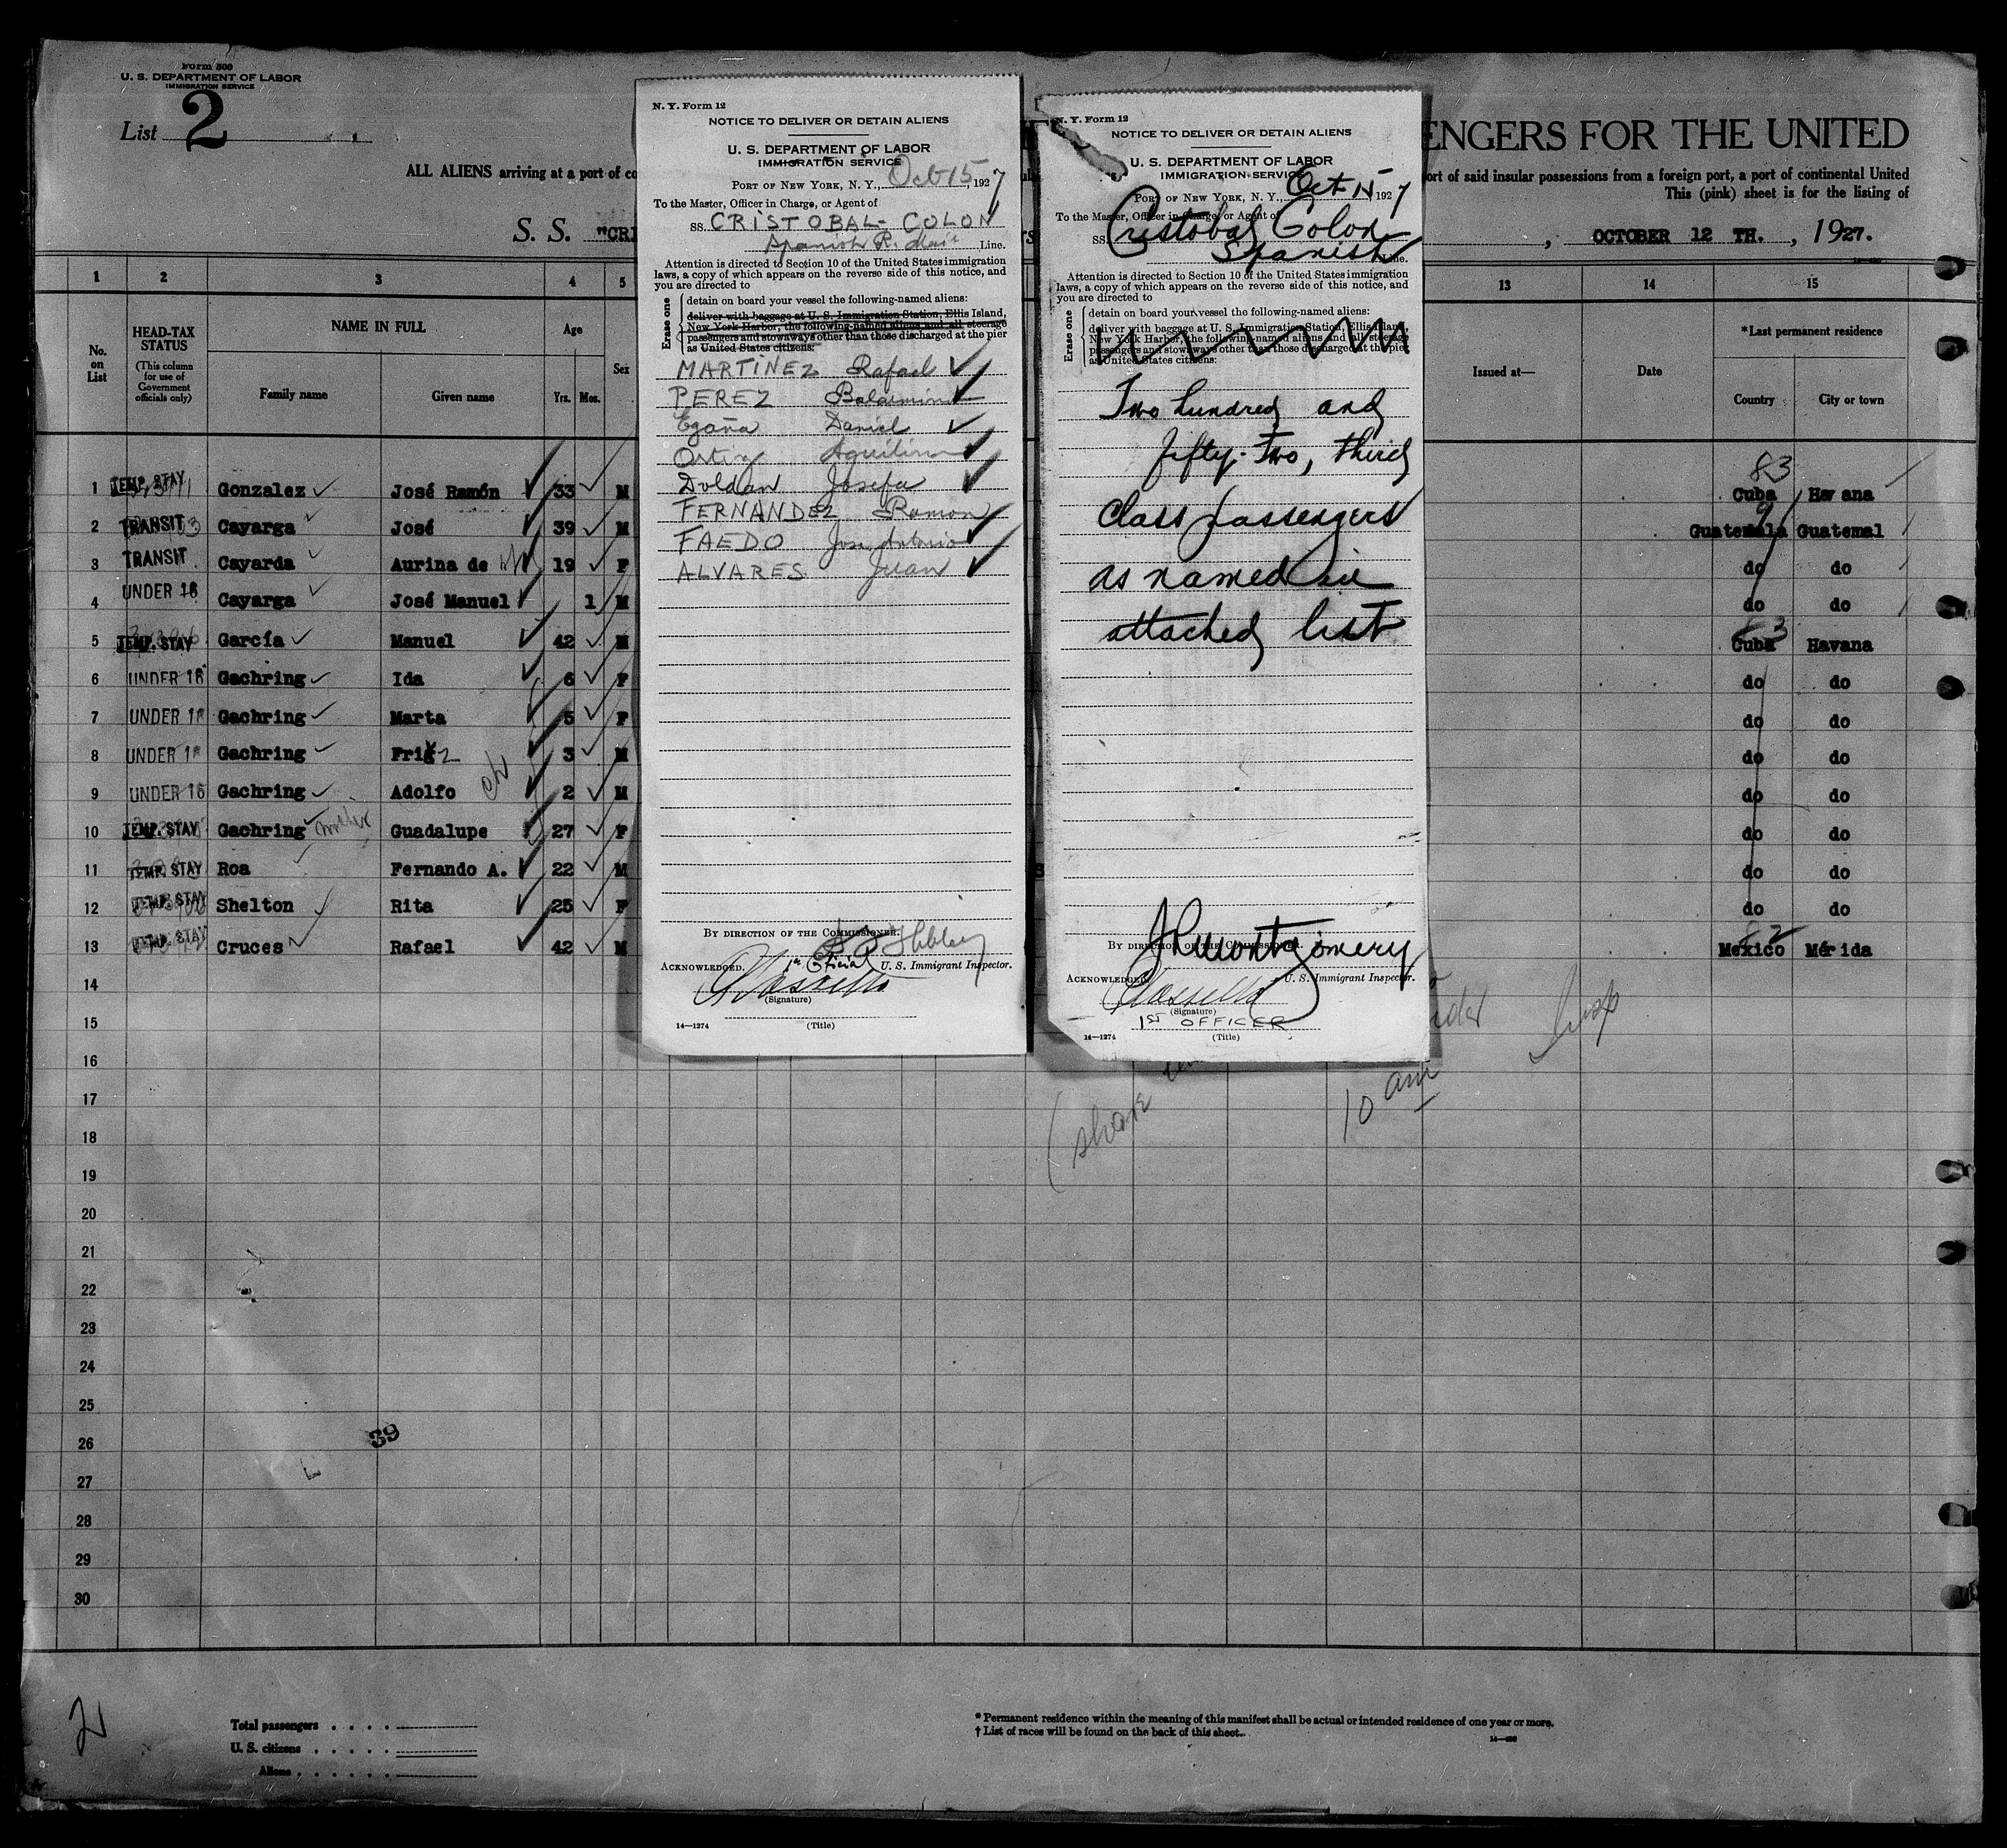 Form 500
U. S. DEPARTMENT OF LABOR
IMMIGRATION SERVICE
List 2
ENGERS FOR THE UNITED
ALL ALIENS arriving at a port of co
ort of said insular possessions from a foreign port, a port of continental United
This (pink) sheet is for the listing of
S. S. "CRI
, OCTOBER 12 TH. , 1927.
1 2 3 4 5 13 14 15
No. on List
HEAD-TAX STATUS
(This column for use of Government officials only)
NAME IN FULL
Family name Given name
Age
Yrs. Mos.
Sex
Issued at—
Date
*Last permanent residence
Country City or town
83
1 TEMP. STAY Gonzalez José Ramón 33 M Cuba Havana
91
2 TRANSIT Cayarga José 39 M Guatemala Guatemal
3 TRANSIT Cayarda Aurina de 19 F do do
4 UNDER 16 Cayarga José Manuel 1 M do do
83
5 TEMP. STAY García Manuel 42 M Cuba Havana
6 UNDER 16 Gachring Ida 6 F do do
7 UNDER 16 Gachring Marta 5 F do do
8 UNDER 16 Gachring Fritz 3 M do do
9 UNDER 16 Gachring Adolfo 2 M do do
10 TEMP. STAY Gachring mother Guadalupe 27 F do do
11 TEMP. STAY Roa Fernando A. 22 M do do
12 TEMP. STAY Shelton Rita 25 F do do
82
13 TEMP. STAY Cruces Rafael 42 M Mexico Mérida
14
15
16
17
18
19
20
21
22
23
24
25
26
27
28
29
30
10 am
39
2
Total passengers
U. S. citizens
Aliens
* Permanent residence within the meaning of this manifest shall be actual or intended residence of one year or more.
† List of races will be found on the back of this sheet.
N. Y. Form 12
NOTICE TO DELIVER OR DETAIN ALIENS
U. S. DEPARTMENT OF LABOR
IMMIGRATION SERVICE
PORT OF NEW YORK, N. Y., Oct 15, 1927
To the Master, Officer in Charge, or Agent of
SS. CRISTOBAL-COLON
Spanish R. Mail Line.
Attention is directed to Section 10 of the United States immigration
laws, a copy of which appears on the reverse side of this notice, and
you are directed to
Erase one
detain on board your vessel the following-named aliens:
deliver with baggage at U. S. Immigration Station, Ellis Island,
New York Harbor, the following-named aliens and all steerage
passengers and stowaways other than those discharged at the pier
as United States citizens:
MARTINEZ Rafael
PEREZ
Egaña Daniel
Ortiz
Doldan Josefa
FERNANDEZ Ramon
FAEDO Jose Antonio
ALVARES Juan
BY DIRECTION OF THE COMMISSIONER.
U. S. Immigrant Inspector.
ACKNOWLEDGED.
1er Oficial
(Signature)
(Title)
14—1274
N. Y. Form 12
NOTICE TO DELIVER OR DETAIN ALIENS
U. S. DEPARTMENT OF LABOR
IMMIGRATION SERVICE
PORT OF NEW YORK, N. Y., Oct 15, 1927
To the Master, Officer in Charge, or Agent of
SS. Cristobal Colon
Spanish Line.
Attention is directed to Section 10 of the United States immigration
laws, a copy of which appears on the reverse side of this notice, and
you are directed to
Erase one
detain on board your vessel the following-named aliens:
deliver with baggage at U. S. Immigration Station, Ellis Island,
New York Harbor, the following-named aliens and all steerage
passengers and stowaways other than those discharged at the pier
as United States citizens:
Two hundred and
fifty-two, third
class passengers
as named in
attached list
BY DIRECTION OF THE COMMISSIONER.
Montgomery
U. S. Immigrant Inspector.
ACKNOWLEDGED.
(Signature)
1ST OFFICER
(Title)
14—1274